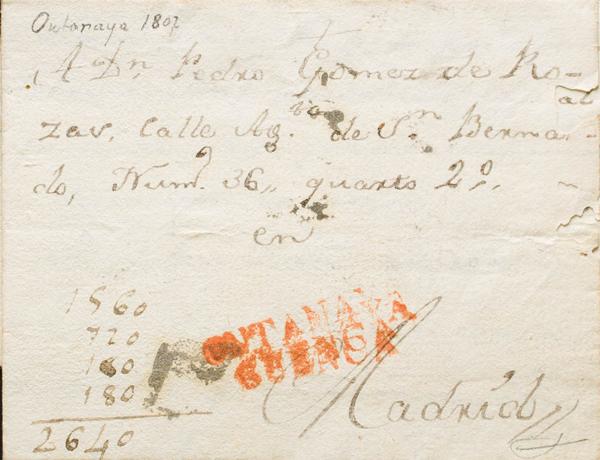 Outanaya 1807
A Dn. Pedro Gomez de Ro-
zas, Calle de Sn. Berna-
do, Num. 36,, quarto 2º,
en
Madrid
1560
720
180
180
2640
OUTANAYA
CUENCA